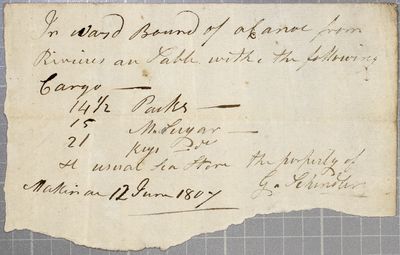 In ward Bound of a Canoe from
Rivieres au Sable with the following
Cargo —
14 1/2 Packs —
15 M. Sugar —
21 Kegs Do
& usual Sea Store the property of
Makinac 12 June 1807 G. Schindler